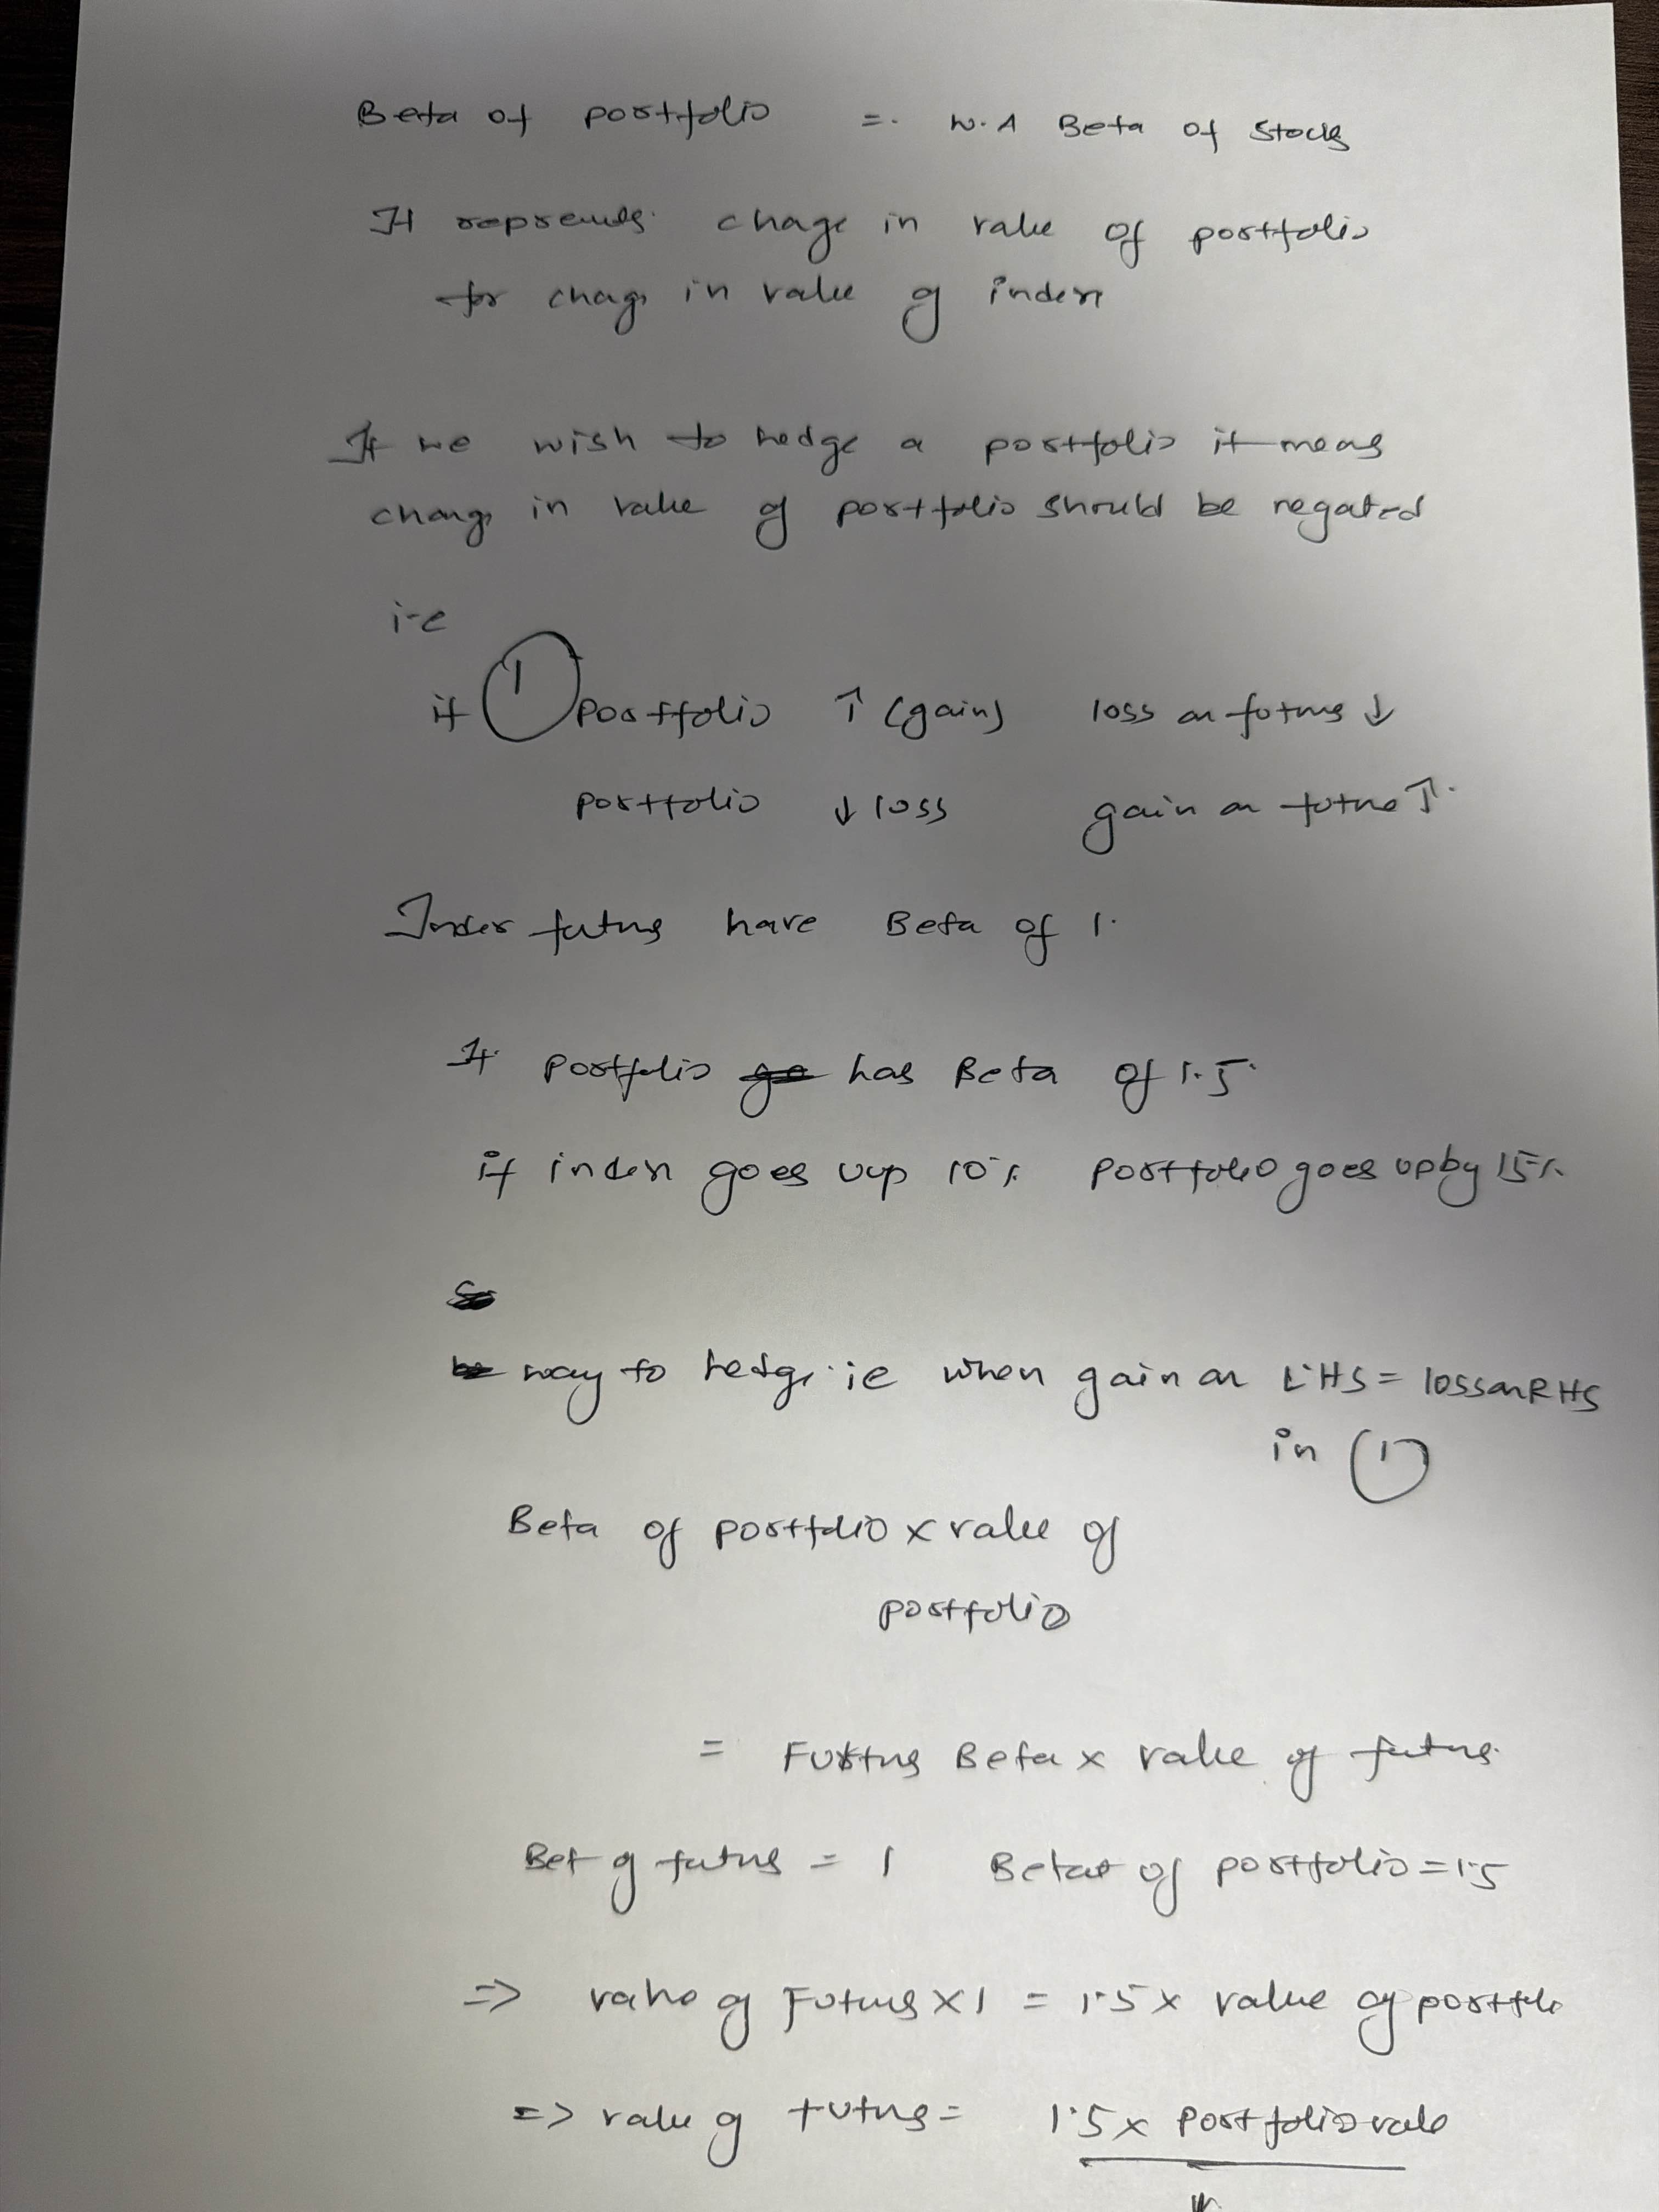 Beta of portfolio =. W.A Beta of Stocks
It represents change in value of portfolio
for chage in value of index
If we wish to hedge a portfolio it means
change in value of portfolio should be negated
i-e
if 1 portfolio ↑ (gain) loss on futures ↓
portfolio ↓ loss gain on future ↑.
Index futures have Beta of 1.
If portfolio has Beta of 1.5.
if index goes uup 10% portfolio goes up by 15%
way to hedge ie when gain on LHS = loss on RHS
in 1
Beta of portfolio x value of
portfolio
= Futures Beta x value of futures.
Bet of futures = 1 Beta of portfolio = 1.5
=> value of Futures x 1 = 1.5 x value of portfolio
=> value of futures = 1.5 x portfolio value